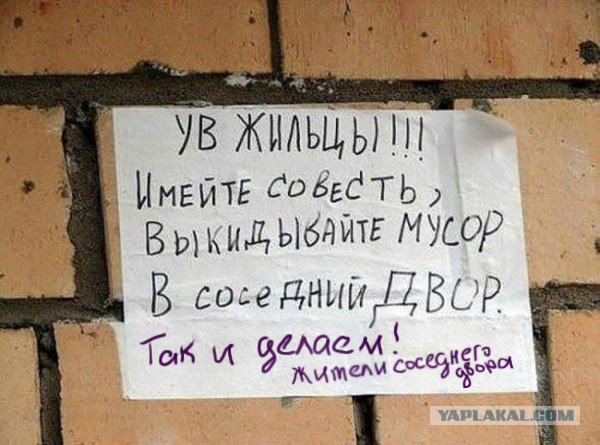 УВ ЖИЛЬЦЫ!!!
ИМЕЙТЕ СОВЕСТЬ,
ВЫКИДЫВАЙТЕ МУСОР
В СОСЕДНИЙ ДВОР.
Так и делаем!
Жители соседнего
двора
YAPLAKAL.COM